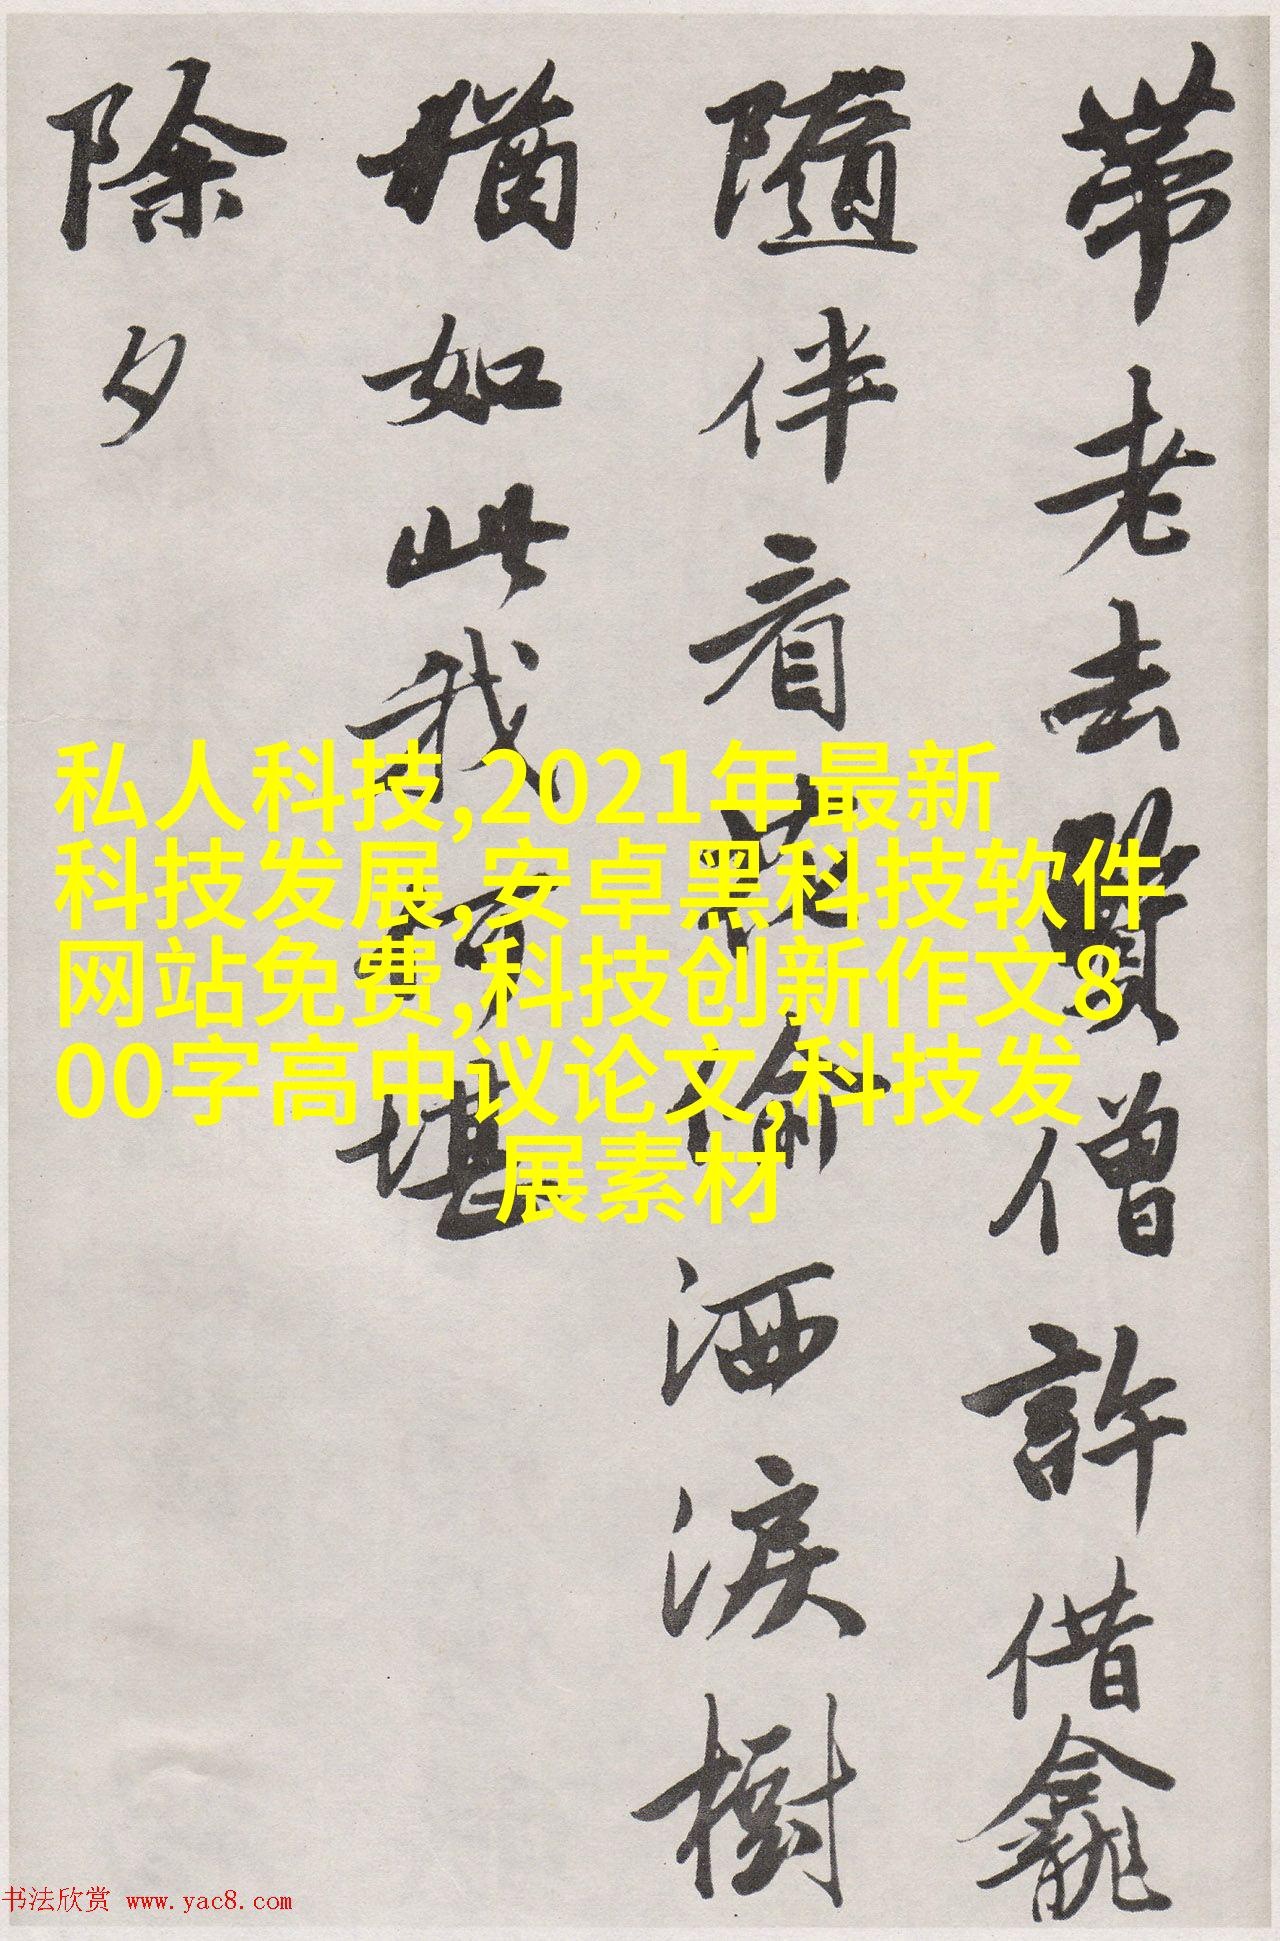 帶老去賢僧許借龕
隨伴看花偷洒淚樹
猶如此我何堪
除夕
私人科技,2021年最新
科技发展,安卓黑科技软件
网站免费,科技创新作文8
00字高中议论文,科技发
展素材
书法欣赏 www.yac8.com